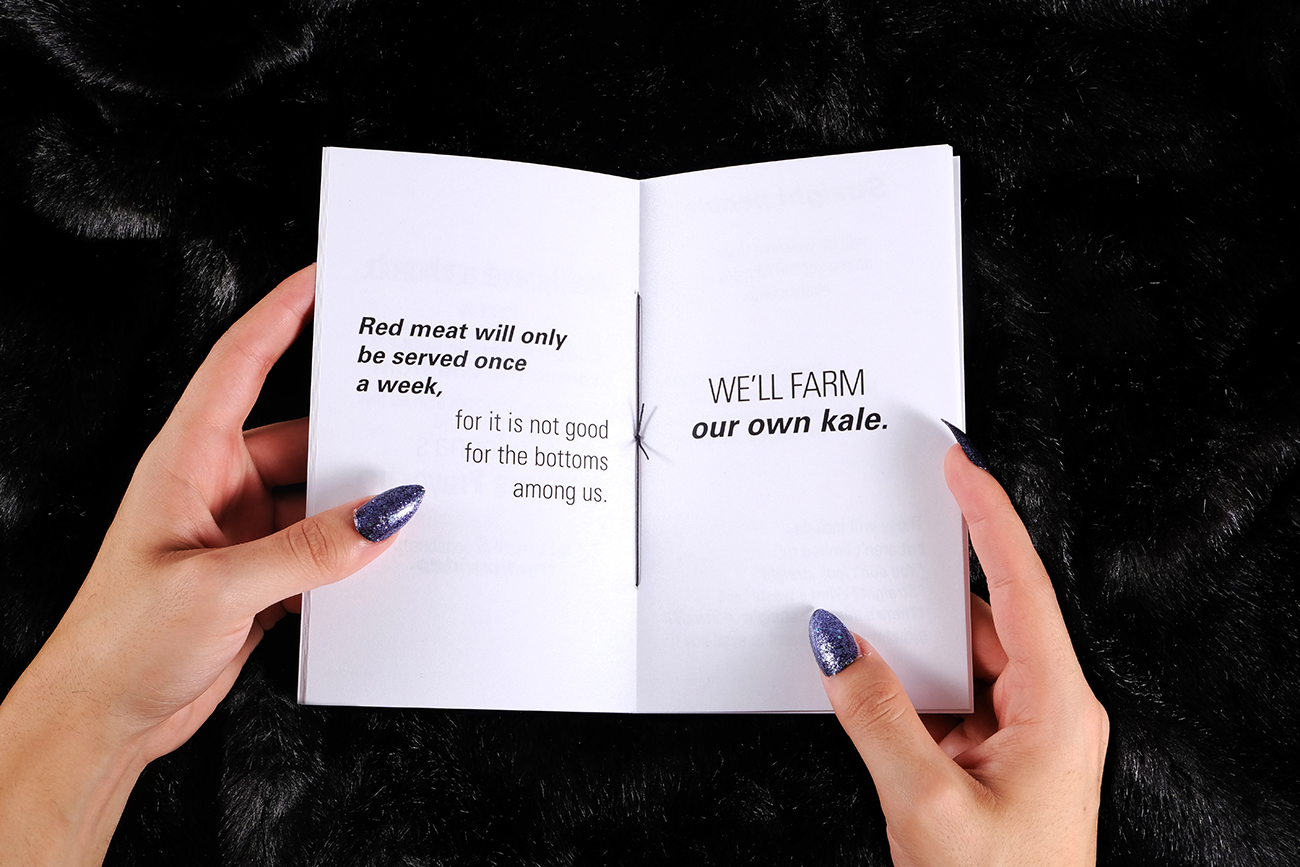 Red meat will only
be served once
a week,
for it is not good
for the bottoms
among us.
WE'LL FARM
our own kale.